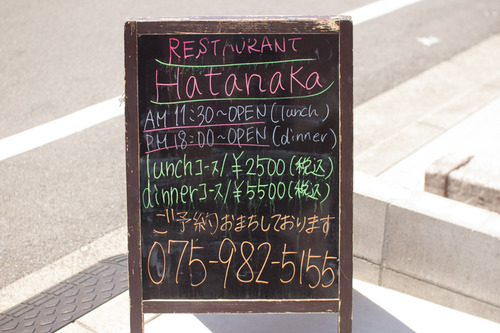 RESTAURANT
Hatanaka
AM 11:30~OPEN (lunch)
PM 18:00~OPEN (dinner)
lunchコース/¥2500(税込)
dinnerコース/¥5500(税込)
ご予約おまちしております
075-982-5155